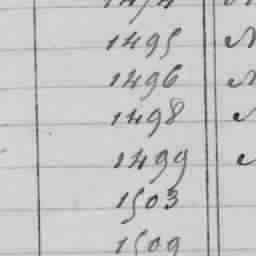 1495
1496
1498
1499
1503
1509